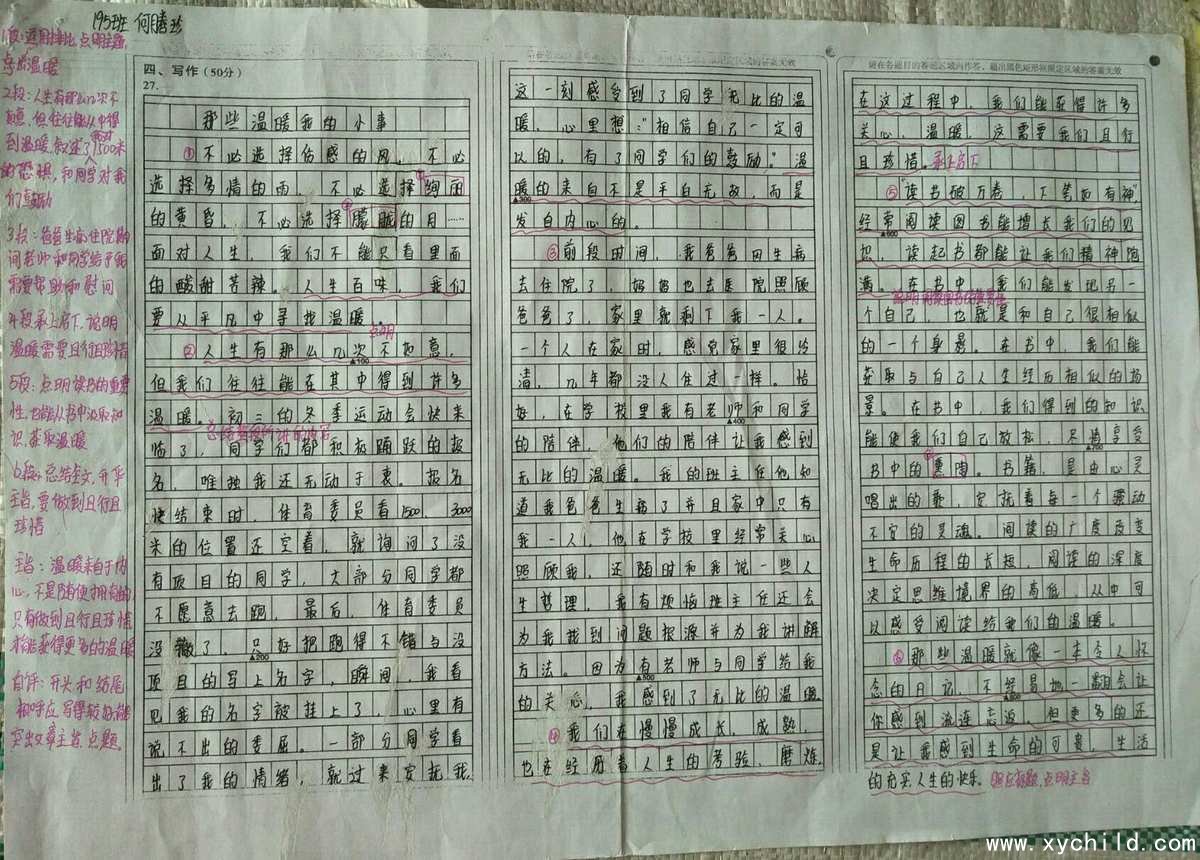 195班 何腾珍
1段:运用排比,点明主题,
点出温暖
2段:人生有那么几次不
如意,但往往能从中得
到温暖,叙述了1500米
的恐惧,和同学对我
们鼓励
3段:爸爸生病住院期
间老师和同学给予我
需要帮助和慰问
4段承上启下,说明
温暖需要且行且珍惜
5段:点明读书的重要
性,也能从书中汲取知
识,获取温暖
6段:总结全文,升华
主旨,要做到且行且
珍惜
主旨:温暖来自于内
心,不是随便拥有的
只有做到且行且珍惜
才能获得更多的温暖
自评:开头和结尾
相呼应,写得较好,能
突出文章主旨,点题。
四、写作(50分)
27.
那些温暖我的小事
①不必选择伤感的风,不必
选择多情的雨,不必选择绚丽
的黄昏,不必选择朦胧的月……
面对人生,我们不能只看里面
的酸甜苦辣。人生百味,我们
要从平凡中寻找温暖。
点明
②人生有那么几次不如意,
▲100
但我们往往能在其中得到许多
温暖。初三的冬季运动会快来
临了,同学们都积极踊跃的报
名,唯独我还无动于衷。报名
快结束时,体育委员看1500、3000
米的位置还空着,就询问了没
有项目的同学,大部分同学都
不愿意去跑,最后,体育委员
没辙了,只好把跑得不错与没
▲200
项目的写上名字,瞬间,我看
见我的名字被挂上了,心里有
说不出的委屈。一部分同学看
出了我的情绪,就过来安抚我,
这一刻感受到了同学无比的温
暖,心里想:"相信自己一定可
以的,有了同学们的鼓励。"温
暖的来自不是平白无故,而是
▲300
发自内心的。
③前段时间,我爸爸因生病
去住院了,妈妈也去医院照顾
爸爸了,家里就剩下我一人。
一个人在家时,感觉家里很冷
清,几年都没人住过一样。恰
好,在学校里我有老师和同学
▲400
的陪伴,他们的陪伴让我感到
无比的温暖。我的班主任他知
道我爸爸生病了并且家中只有
我一人,他在学校里经常关心
照顾我,还随时和我说一些人
生哲理,我有烦恼班主任还会
为我找到问题根源并为我讲解
方法。因为有老师与同学给我
▲500
的关心,我感到了无比的温暖。
④我们在慢慢成长,成熟,
也在经历着人生的考验,磨炼,
请在各题目的答题区域内作答,超出黑色矩形边框限定区域的答案无效
在这过程中,我们能获得许多
关心,温暖,这需要我们且行
且珍惜。承上启下
⑤"读书破万卷,下笔如有神",
经常阅读图书能增长我们的见
▲600
识,读起书都能让我们精神饱
满。在书中,我们能发现另一
个自己,也就是和自己很相似
的一个身影。在书中,我们能
获取与自己人生经历相似的场
景。在书中,我们得到的知识
能使我们自己放松,尽情享受
▲700
书中的熏陶。书籍,是由心灵
唱出的歌,它就着每一个骚动
不定的灵魂。阅读的广度改变
生命历程的长短,阅读的深度
决定思维境界的高低,从中可
以感受阅读给我们的温暖。
⑥那些温暖就像一本令人怀
念的日记,不经易地一翻会让
▲800
你感到流连忘返,但更多的还
是让我感到生命的可贵,生活
的充实,人生的快乐。照应标题,点明主旨
www.xychild.com